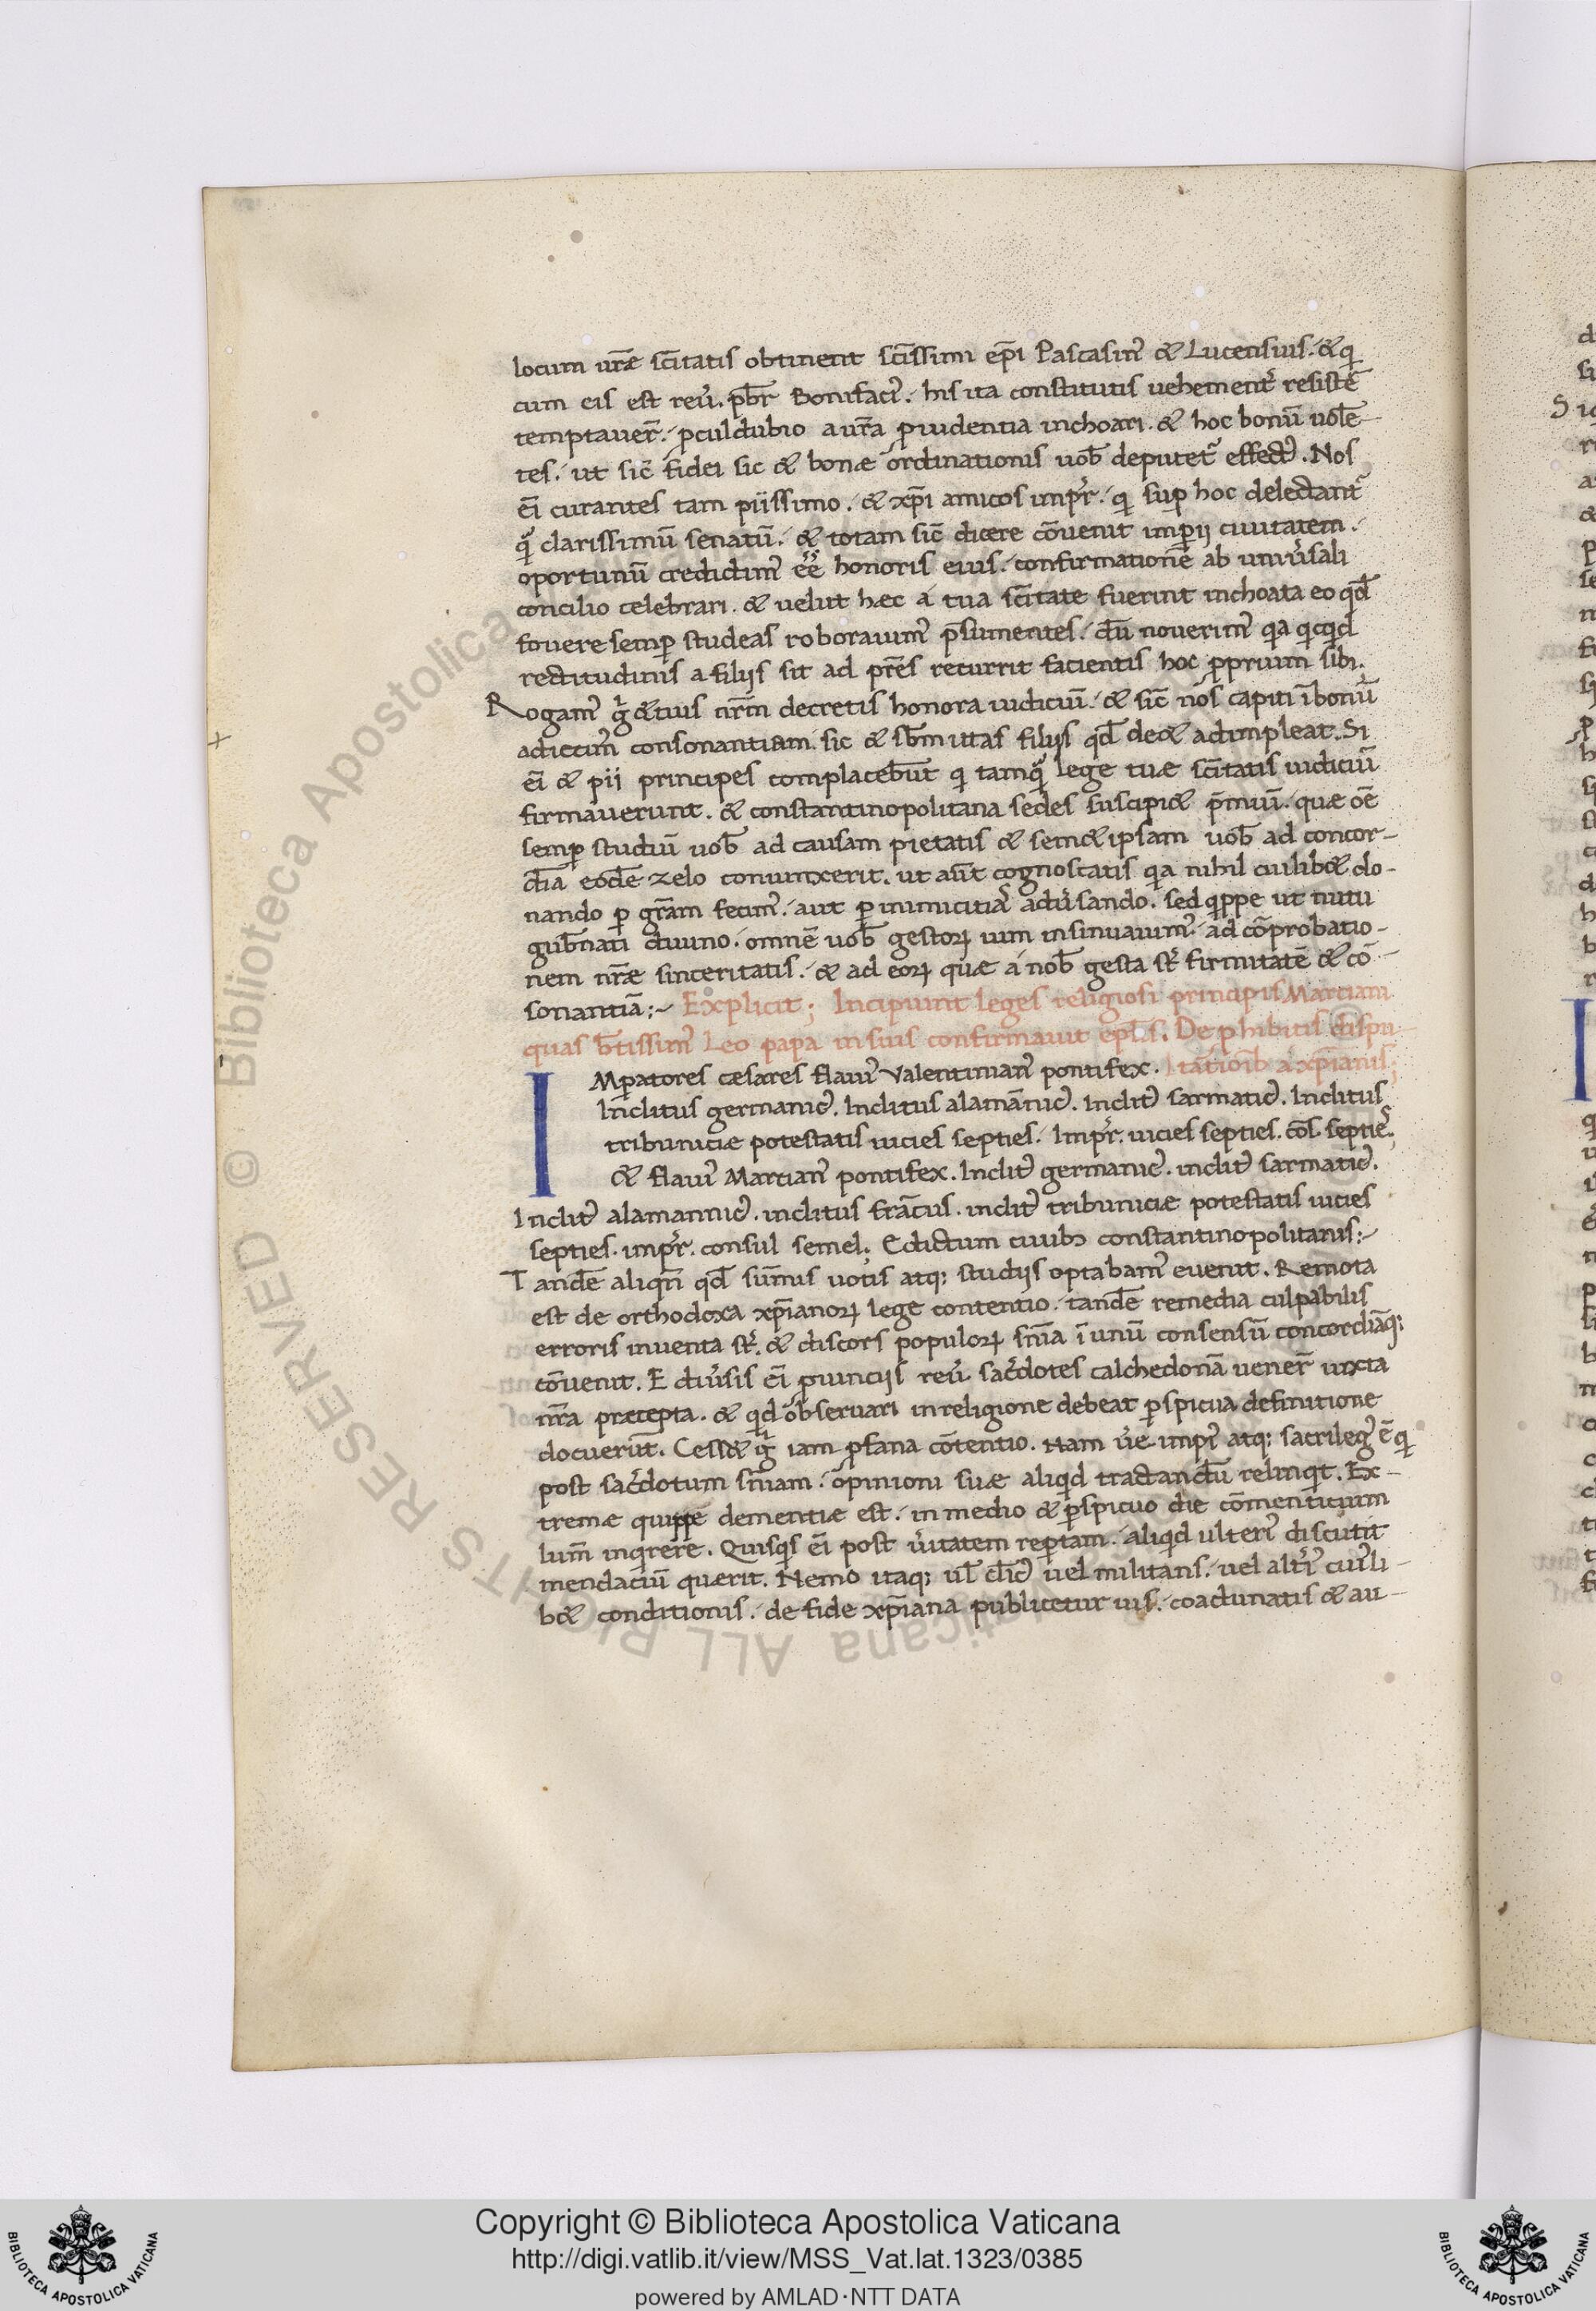 locum ur̄æ sc̄itatis obtinent sc̄issimi ep̄i Pascasin᾿ & Lucensius. & q
cum eis est reu᾿. pb̄r Bonifaci᾿. his ita constitutis uehement᾿ resistē
temptauer̄. ꝓculdubio a ur̄a ꝓuidentia inchoari. & hoc bonū uolē
tes. ut sic̄ fidei sic & bonæ ordinationis uob̄ deputet᾿ effect᾿. Nos
ei᾿ curantes tam piissimo. & xp̄i amicos imp̄r. q suꝑ hoc delectant᾿
q᾿ clarissimū senatū. & totam sic̄ dicere cōuenit imꝑij ciuitatem.
oportunū credidim᾿ ēē honoris eius. confirmationē ab uniu᾿sali
concilio celebrari. & uelut hæc a tua sc̄itate fuerint inchoata eo qd̄
fouere semꝑ studeas roborauim᾿ p̄sumentes. dū nouerim᾿ qa qcqd
rectitudinis a filijs sit ad pr̄es recurrit facientis hoc ꝓprium sibi.
Rogam᾿ g᾿ & tuis nr̄m decretis honora iudiciū. & sic̄ nos capiti ī bonis
adiecim᾿ consonantiam. sic & sb̄mittas filijs qd̄ dec& adimpleat. Si
ei᾿ & pii principes complacebūt q tamq᾿ lege tuæ sc̄itatis iudiciū
firmauerunt. & constantinopolitana sedes suscipi& p̄miū. quæ oē
semꝑ studiū uob̄ ad causam pietatis & sem&ipsam uob̄ ad concor-
diā eodē zelo coniunxerit. ut aūt cognoscatis qa nihil cuilib& do-
nando ꝑ gr̄am fecim᾿. aut ꝑ inimicitiā adu᾿sando. sed qppe ut nutu
gub̄nati diuino. omnē uob̄ gestoꝝ uim insinuauim᾿. ad cōprobatio-
nem nr̄æ sinceritatis. & ad eoꝝ quæ a nob̄ gesta st᾿ firmitatē & cō-
sonantiā:~ Explicit; Incipiunt leges religiosi principis Martiani
quas b̄tissim᾿ Leo papa in suis confirmauit epl̄is. De ꝓhibitis dispu
IMꝑatores cæsares flaui᾿ Valentinian᾿ pontifex. | tātioib᾿ a xp̄ianis;
Inclitus germanic᾿. Inclitus alamānic᾿. Inclit᾿ sarmatic᾿. Inclitus
tribuniciæ potestatis uicies septies. Imp̄r. uicies septies. cōs. septie᾿.
& flaui᾿ Martian᾿ pontifex. Inclit᾿ germanic᾿. inclit᾿ sarmatic᾿.
Inclit᾿ alamannic᾿. inclitus frācus. inclit᾿ tribuniciæ potestatis uicies
septies. imp̄r. consul semel. Edictum ciuibꝫ constantinopolitanis:~
Tandē aliqn̄ qd̄ sum̄is uotis atq; studijs optabam᾿ euenit. Remota
est de orthodoxa xp̄ianoꝝ lege contentio. tandē remedia culpabilis
erroris inuenta st᾿. & discors populoꝝ sn̄ia ī unū consensū concordiāq;
cōuenit. E diu᾿sis ei᾿ ꝓuincijs reu᾿ sac᾿dotes calchedonā uener̄ iuxta
nr̄a præcepta. & qd obseruari in religione debeat ꝑspicua definitione
docuerūt. Cess& g᾿ iam ꝓfana cōtentio. Nam u᾿e impi᾿ atq; sacrileg᾿ ē q
post sac᾿dotum sn̄iam. opinioni suæ aliqd tractandū relinqt. Ex-
tremæ quippe dementiæ est. in medio & ꝑspicuo die cōmenticium
lum᾿ inqrere. Quisqs ei᾿ post u᾿itatem reꝑtam. aliqd ulteri᾿ discutit
mendaciū querit. Nemo itaq; ul᾿ cl̄ic᾿ uel militans. uel alt᾿i᾿ cui᾿li-
b& conditionis. de fide xp̄iana publicetur uis. coadunatis & au-
Copyright © Biblioteca Apostolica Vaticana
http://digi.vatlib.it/view/MSS_Vat.lat.1323/0385
powered by AMLAD·NTT DATA